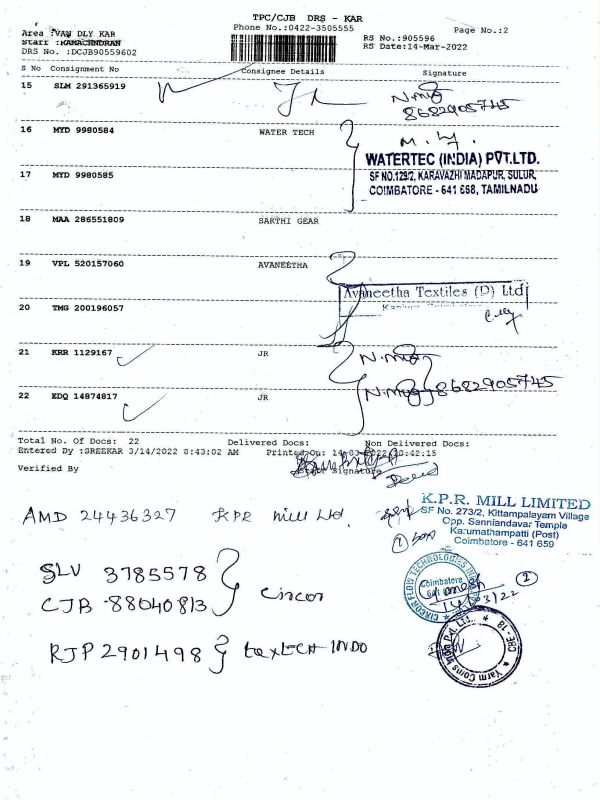 TPC/CJB DRS - KAR
Phone No.:0422-3505555
Page No.:2
Area :VAN DLY KAR
Staff :RAMACHNDRAN
DRS No. :DCJB90559602
RS No.:905596
RS Date:14-Mar-2022
S No Consignment No Consignee Details Signature
15 SLM 291365919
8682905745
16 MYD 9980584 WATER TECH
WATERTEC (INDIA) PVT.LTD.
SF NO.129/2, KARAVAZHI MADAPUR, SULUR,
COIMBATORE - 641 668, TAMILNADU
17 MYD 9980585
18 MAA 286551809 SAKTHI GEAR
19 VPL 520157060 AVANEETHA
Avaneetha Textiles (P) Ltd
20 TMG 200196057
21 KRR 1129167 JR
22 EDQ 14874817 JR
8682905745
Total No. Of Docs: 22 Delivered Docs: Non Delivered Docs:
Entered By :SREEKAR 3/14/2022 8:43:02 AM Printed On: 14-03-2022 10:42:15
Verified By Staff Signature
AMD 24436327 KPR Mill Ltd.
K.P.R. MILL LIMITED
SF No. 273/2, Kittampalayam Village
Opp. Senniandavar Temple
Karumathampatti (Post)
Coimbatore - 641 659
SLV 3785578
CJB 88040813
Circor
CIRCOR FLOW TECHNOLOGIES
Coimbatore
14/03/22
RJP 2901498 textech INDO
Yarm Coins India Pvt. Ltd. * CBE - 18 *